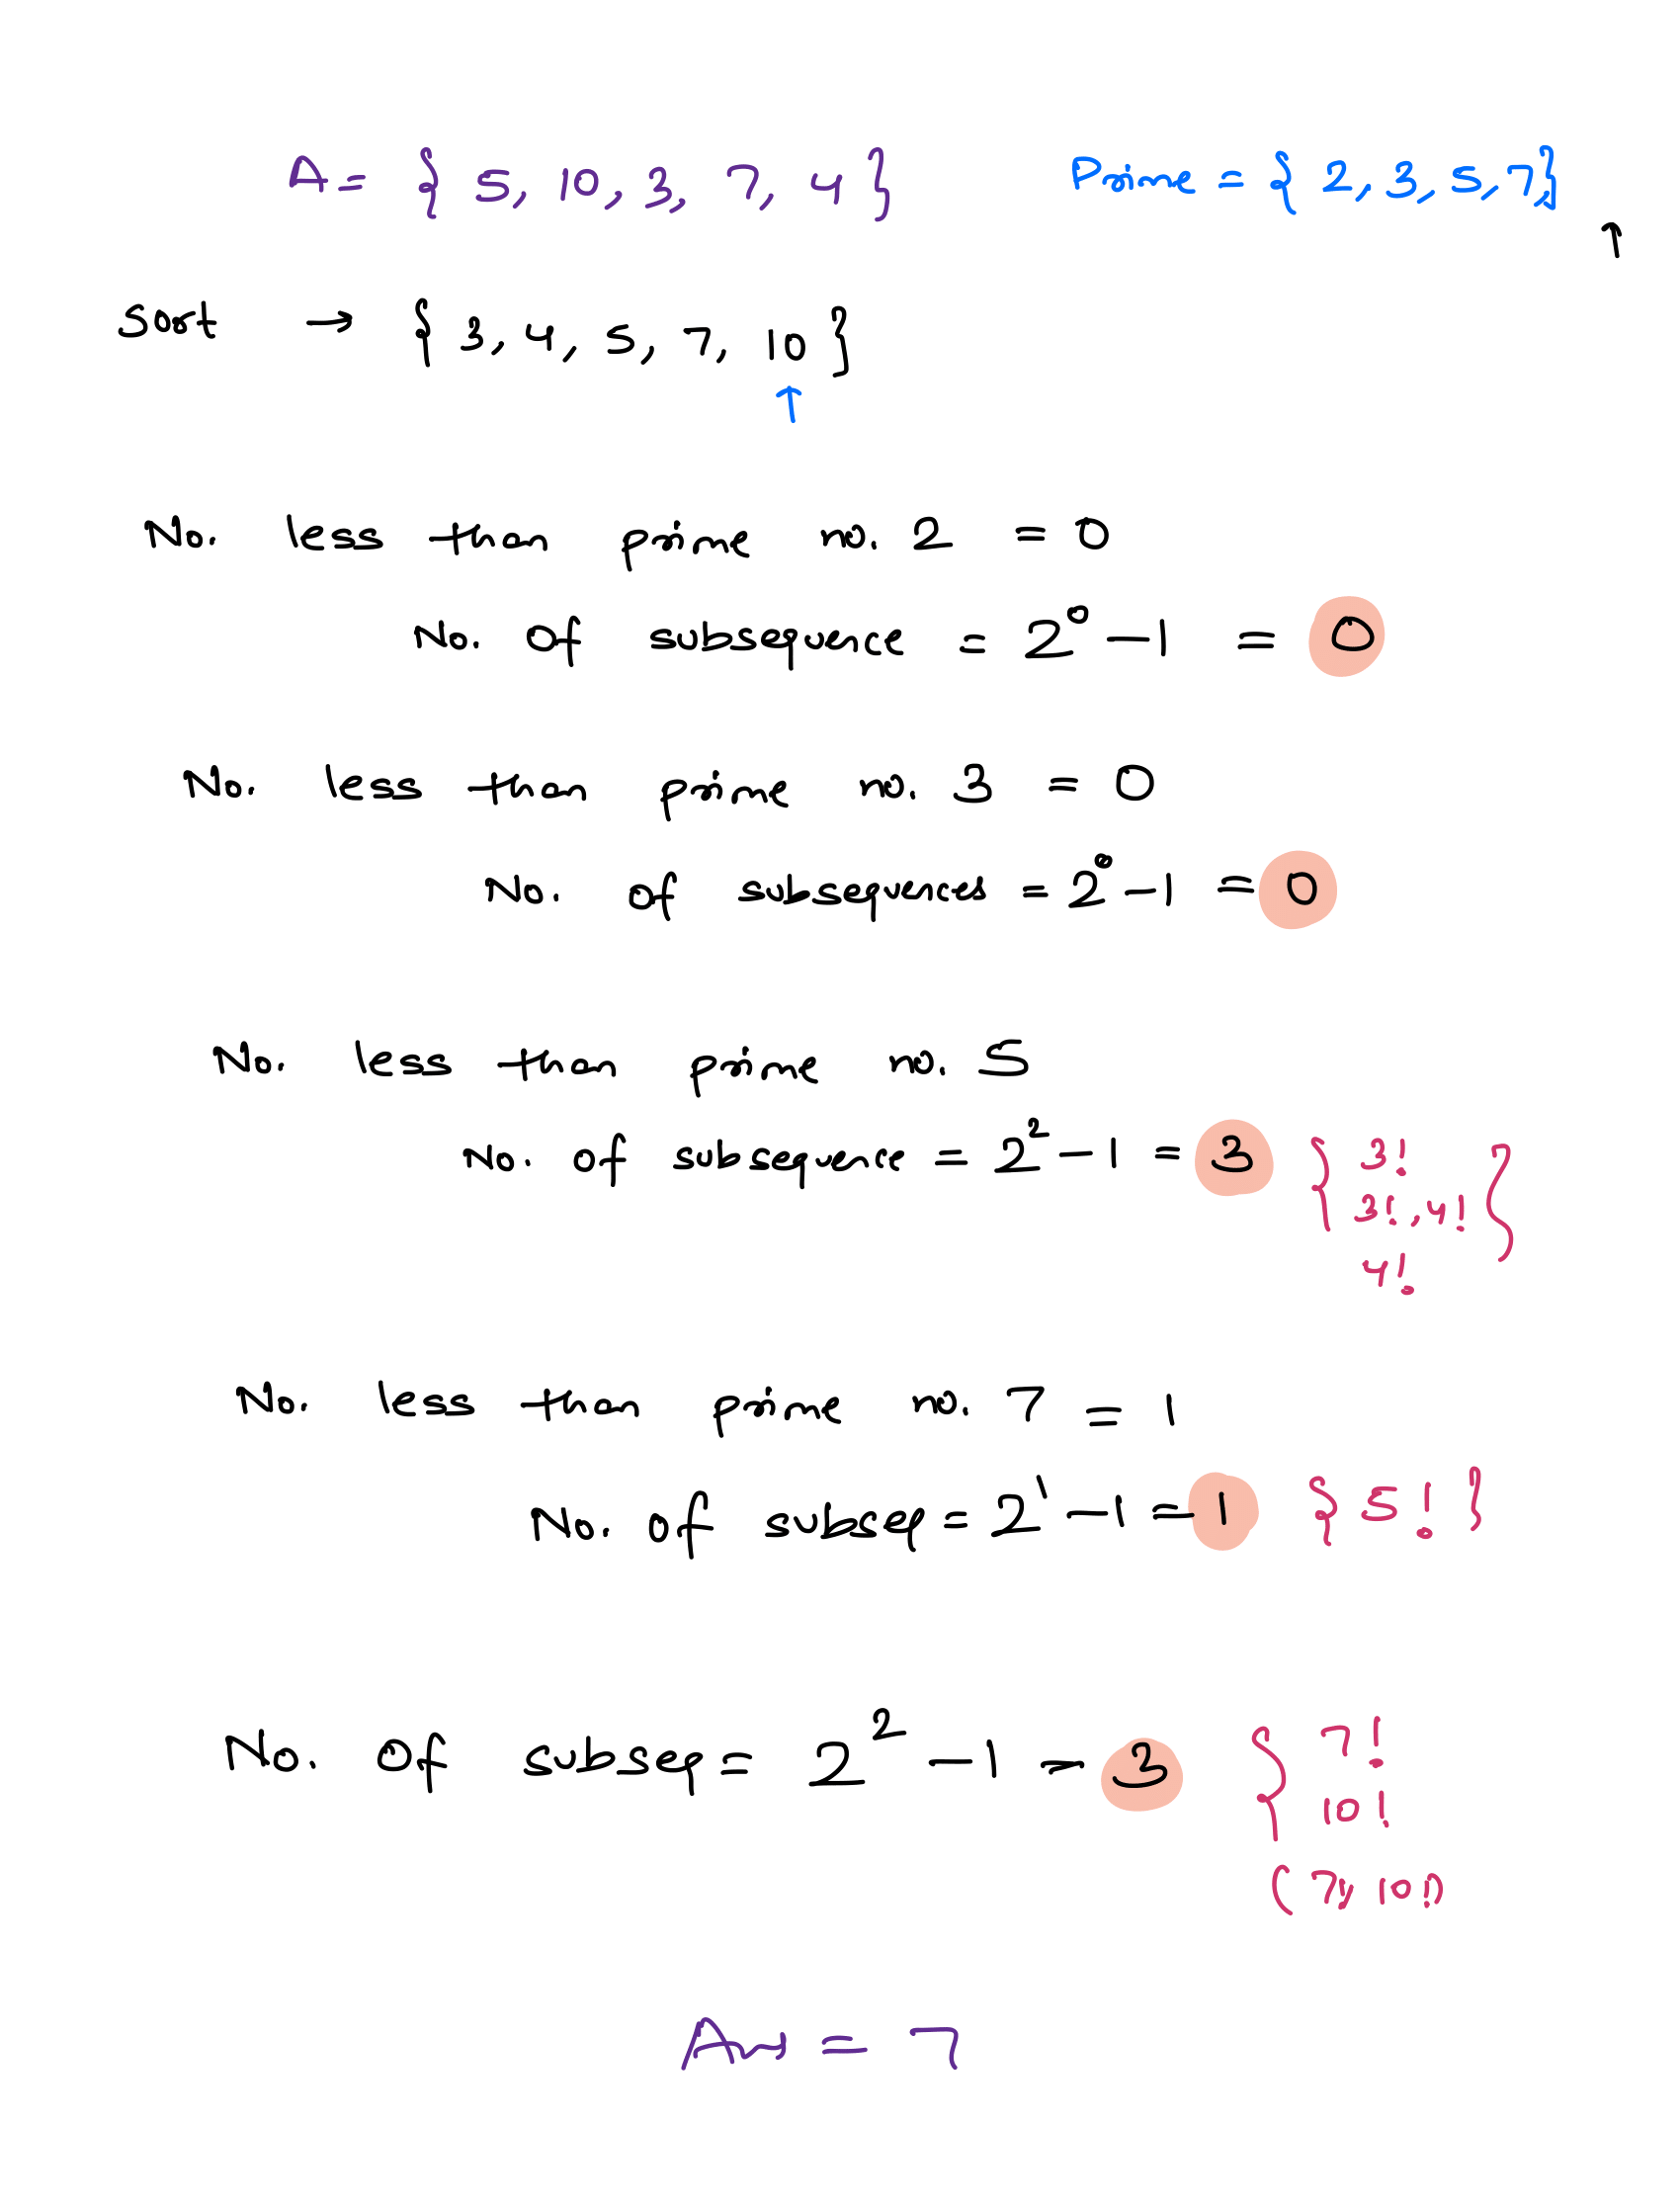 A = { 5, 10, 3, 7, 4 } Prime = { 2, 3, 5, 7}
↑
Sort → { 3, 4, 5, 7, 10 }
↑
No. less than prime no. 2 = 0
No. Of subsequence = 2⁰ - 1 = 0
No. less than prime no. 3 = 0
No. of subsequences = 2⁰ - 1 = 0
No. less than prime no. 5
No. of subsequence = 2² - 1 = 3 { 3!
3!, 4! }
4!
No. less than prime no. 7 = 1
No. of subseq = 2¹ - 1 = 1 { 5! }
No. Of subseq = 2² - 1 = 3 { 7!
10!
( 7!, 10!)
Ans = 7